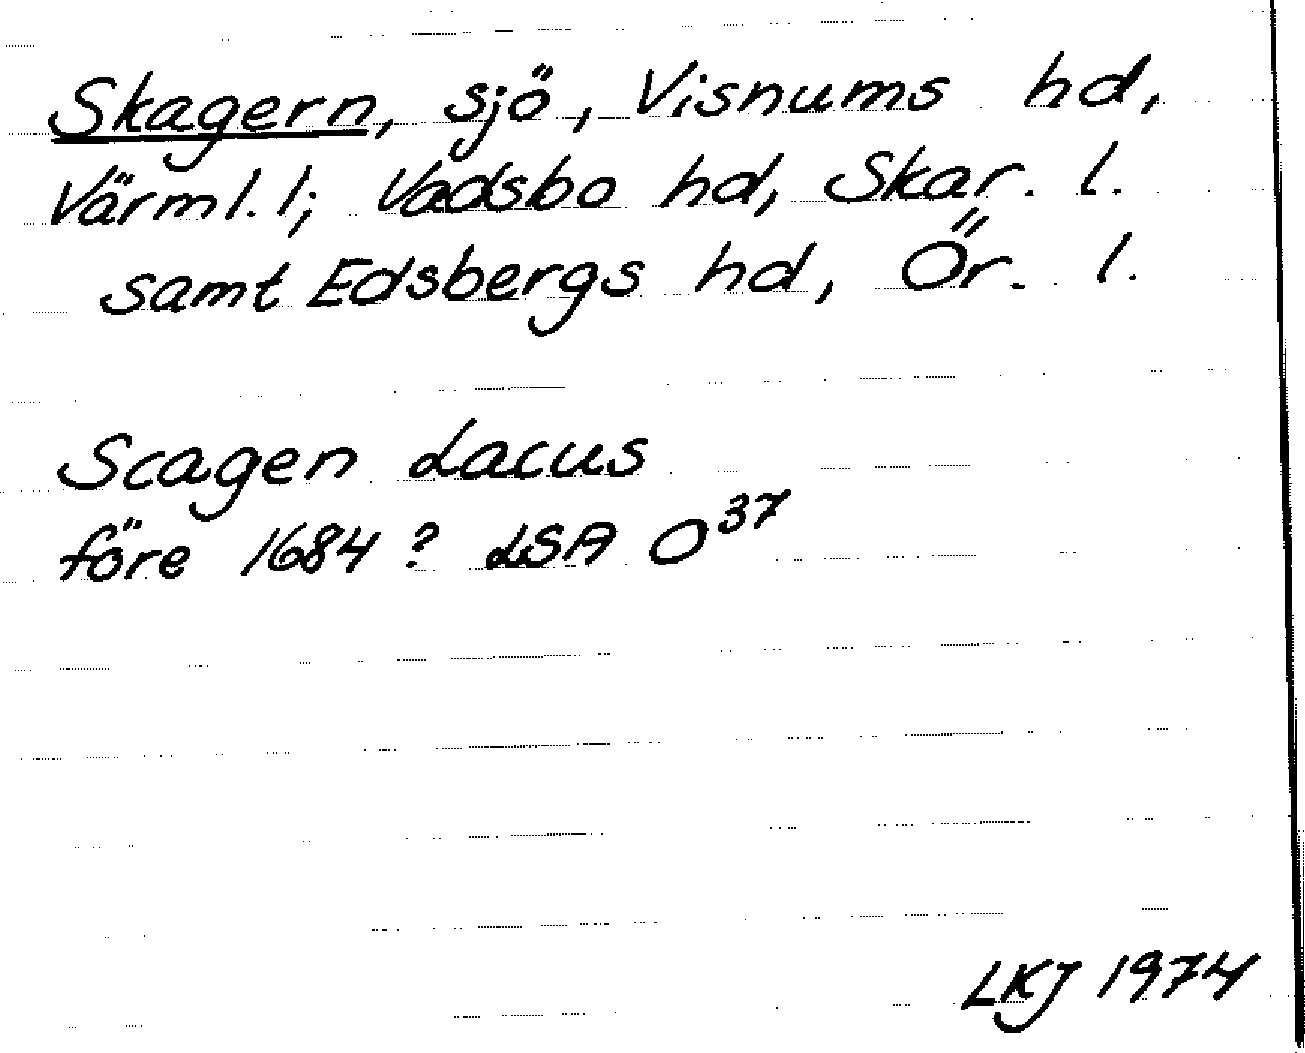 Skagern, sjö, Visnums hd,
Värml. l; Vadsbo hd, Skar. l.
samt Edsbergs hd, Ör. l.
Scagen Lacus
före 1684? LSA O³⁷
LKJ 1974